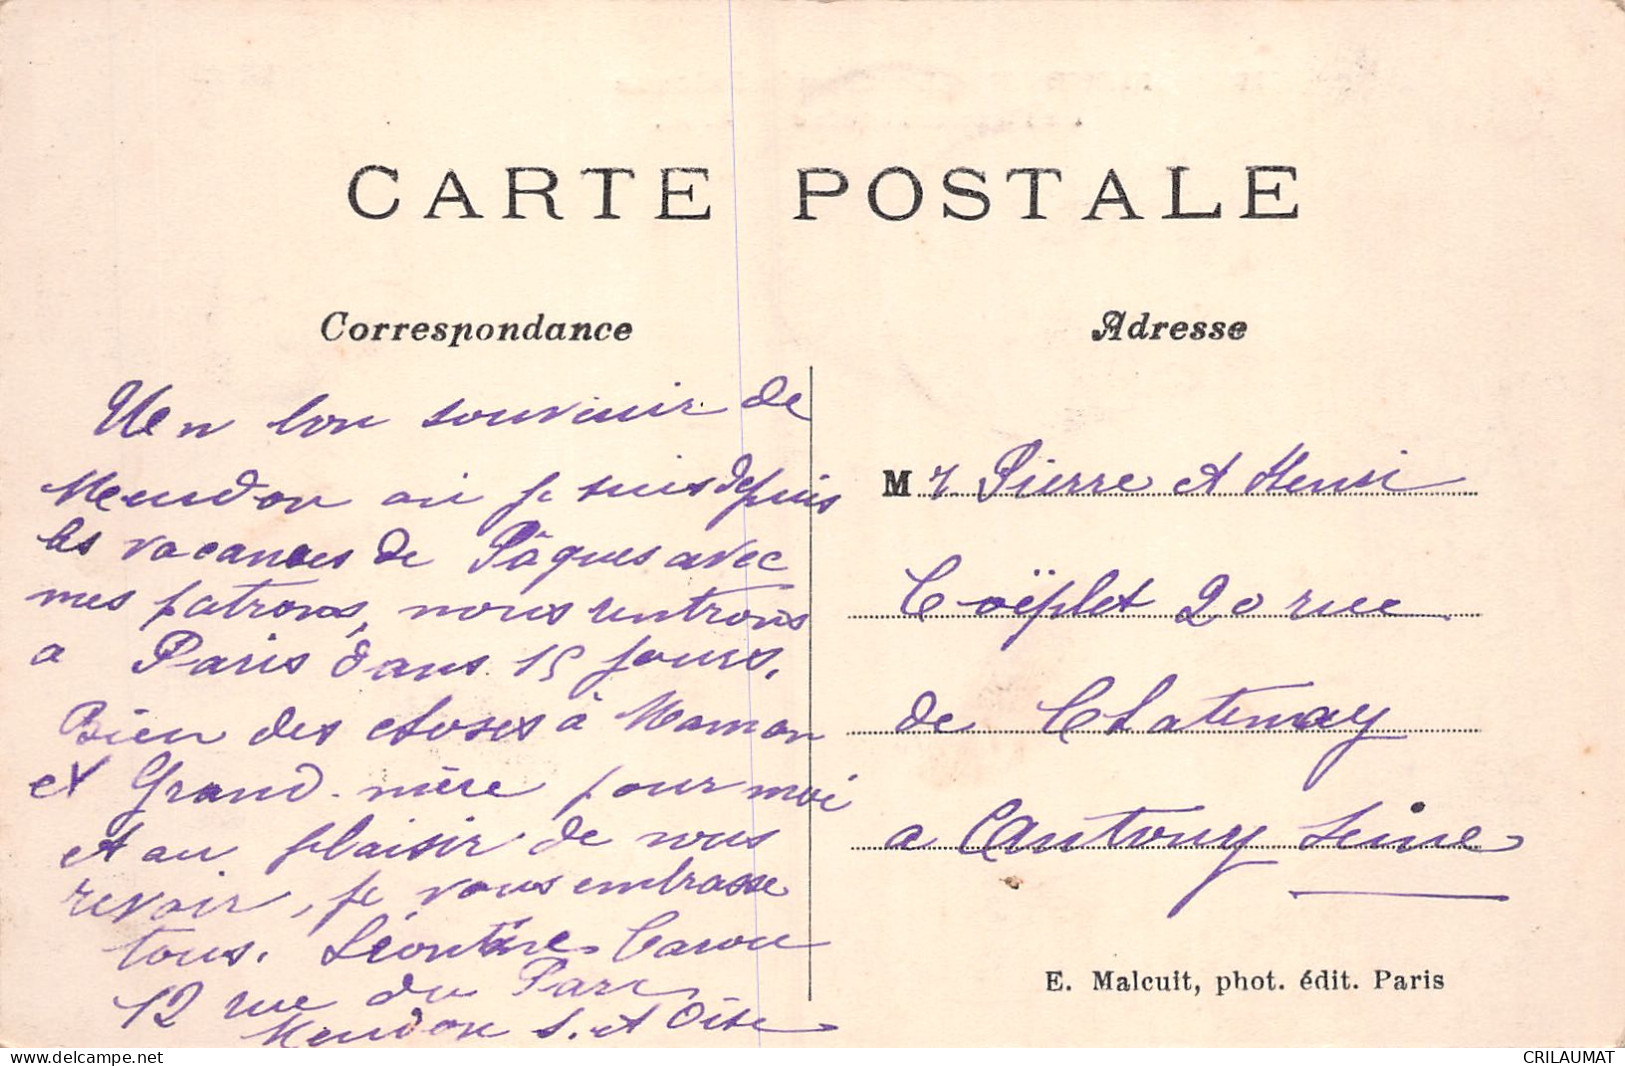 CARTE POSTALE
Correspondance
Un bon souvenir de
Meudon où je suis depuis
les vacances de Pâques avec
mes patrons, nous rentrons
a Paris dans 15 jours.
Bien des choses à Maman
et Grand-mère pour moi
et au plaisir de vous
revoir, je vous embrasse
tous. Léontine
12 rue du Parc
Meudon S. et Oise
Adresse
Mr Pierre et Henri
Coëplet 20 rue
de Chatenay
a Antony Seine
E. Malcuit, phot. édit. Paris
CRILAUMAT